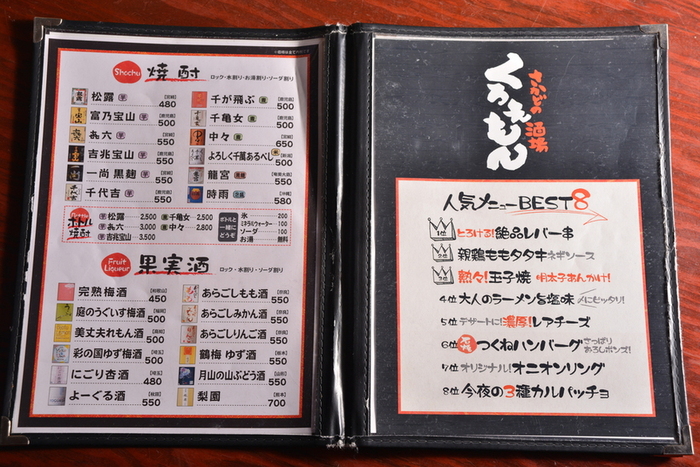 Shochu 焼酎 ロック・水割り・お湯割り・ソーダ割り
松露 芋 [宮崎] 480
富乃宝山 芋 500
㐂六 芋 [宮崎] 550
吉兆宝山 芋 550
一尚 黒麹 芋 550
千代吉 芋 550
千が飛ぶ 麦 500
千亀女 麦 500
中々 麦 [宮崎] 650
よろしく千萬あるべし 米 500
龍宮 500
時雨 [沖縄] 580
ボトル 焼酎
芋 松露 2.500
芋 㐂六 3.000
芋 吉兆宝山 3.500
麦 千亀女 2.500
麦 中々 2.800
ボトルと一緒にどうぞ
氷 200
ミネラルウォーター 100
ソーダ 100
お湯 無料
Fruit Liqueur 果実酒 ロック・水割り・ソーダ割り
完熟梅酒 450
庭のうぐいす梅酒 500
美丈夫れもん酒 500
彩の国ゆず梅酒 500
にごり杏酒 480
よーぐる酒 550
あらごしもも酒 550
あらごしみかん酒 500
あらごしりんご酒 550
鶴梅 ゆず酒 550
月山の山ぶどう酒 550
梨園 700
さかなの酒場
くろえもん
人気メニューBEST8
1位 とろける!絶品レバー串
2位 親鶏モモタタキ ネギソース
3位 熱々!玉子焼 明太子あんかけ!
4位 大人のラーメン塩味 〆にピッタリ!
5位 デザートに!濃厚!レアチーズ
6位 石焼 つくねハンバーグ さっぱりおろしポンズ!
7位 オリジナル!オニオンリング
8位 今夜の3種カルパッチョ